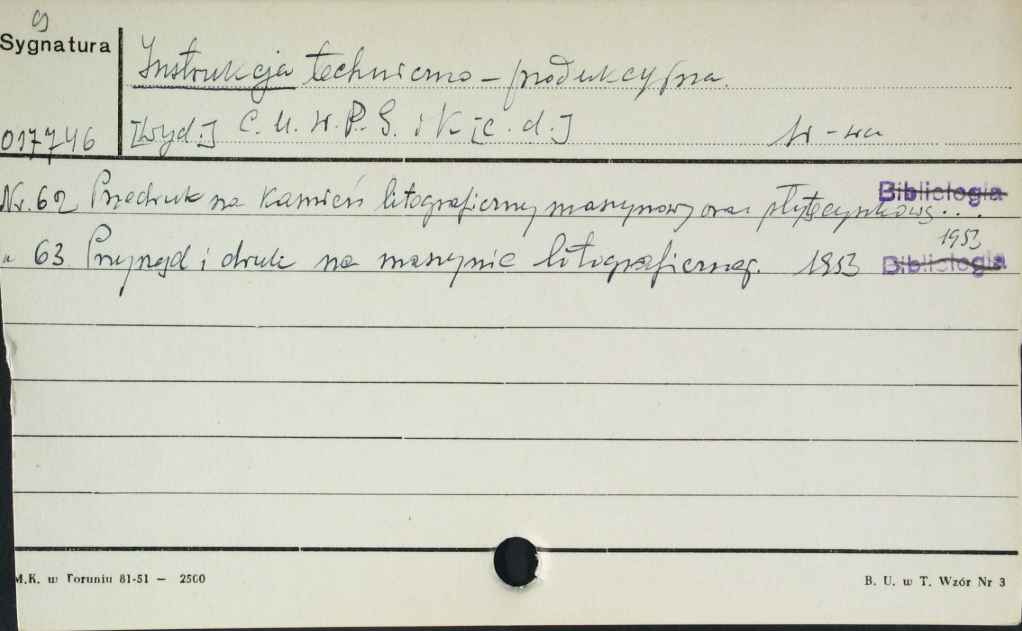 Sygnatura
Instrukcja techniczno-produkcyjna.
017746
[Wyd:] C. U. W. P. G. i K [c. d.] W-wa
Nr. 62 Przedruk na kamień litograficzny maszynowy oraz płytę cynkową...
Bibliologia
1953
" 63 Przyrząd i druk na maszynie litograficznej. 1953 Bibliologia
M.K. w Toruniu 81-51 — 2500
B. U. w T. Wzór Nr 3